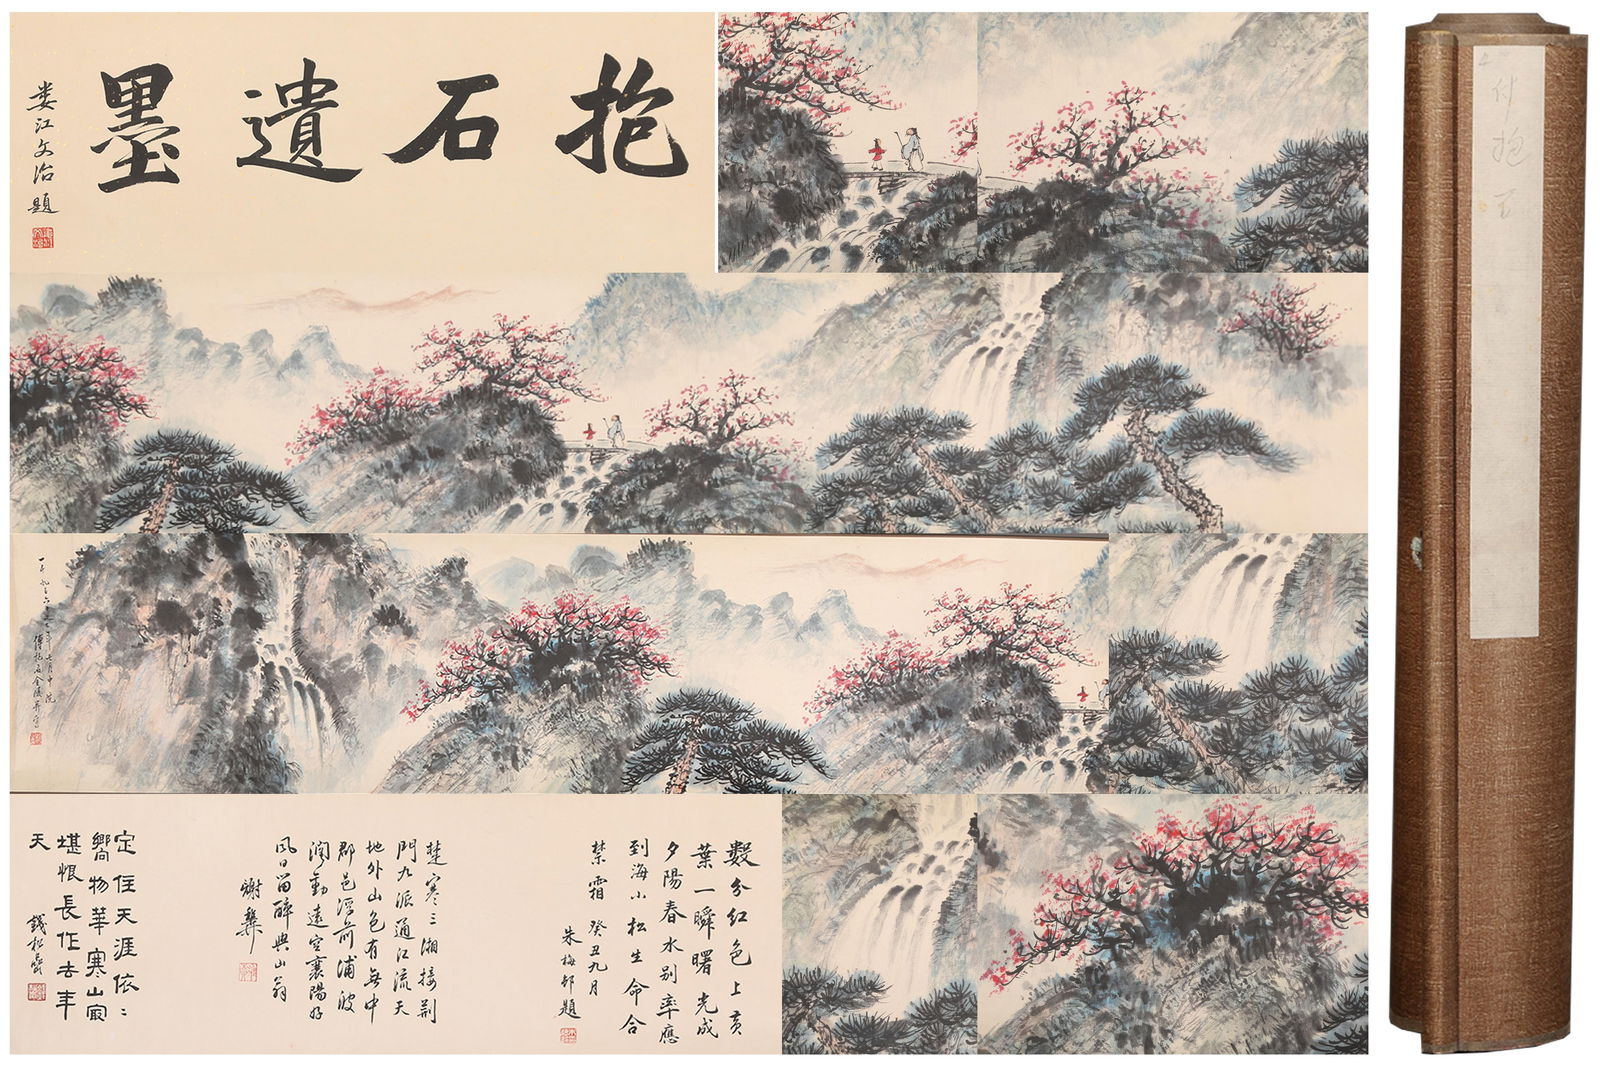 抱石遺墨
娄江文治題
付抱石
七月中浣
傅抱石金陵
數分紅色上黃
葉一瞬曙光成
夕陽春水別率應
到海小松生命合
禁霜 癸丑九月
朱梅邨題
楚寒三湘接荊
門九派通江流天
地外山色有無中
郡邑浮前浦波
瀾動遠空襄陽好
風日留醉與山翁
謝
定住天涯依〻
嚮物華寒山寂
堪恨長作去年
天
錢松嵒